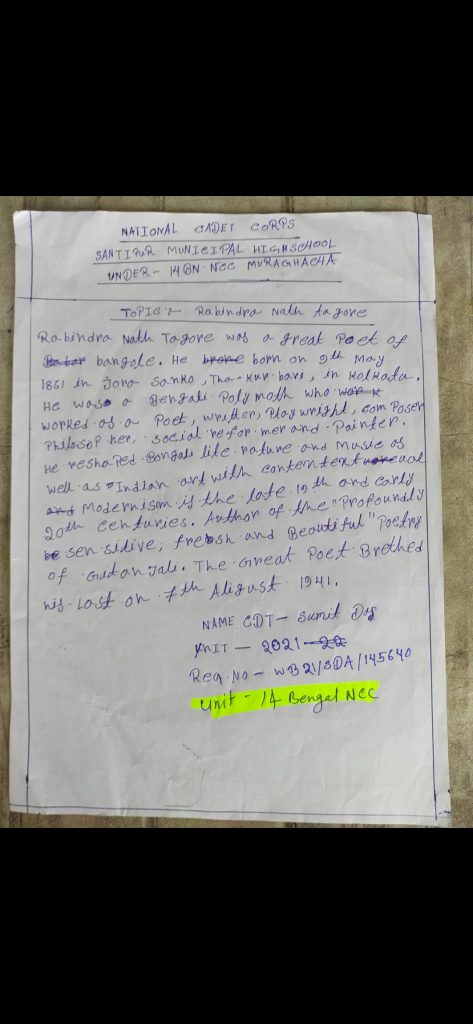 NATIONAL CADET CORPS
SANTIPUR MUNICIPAL HIGHSCHOOL
UNDER - 14 BN NCC MURAGHACHA
TOPIC :- Rabindra Nath tagore
Rabindra Nath Tagore was a great Poet of
bangole. He born on 9th May
1861 in Joro Sanko, Tha-kur bari, in Kolkata.
He was a Bengali Poly moth who
worked as a Poet, writter, Play wright, com Poser
Philosop her, social re for mer and Painter.
He reshaped Bangali lite rature and music as
well as Indian art with contentext
Modernism is the late 19 th and early
20th centuries. Author of the "Profoundly
sen sitive, fresh and Beautiful" Poetry
of Gitanjali. The Great Poet Brethed
his Lost on 7th August 1941.
NAME CDT - Sumit Das
UNIT - 2021-22
Reg. No - WB21/SDA/145640
Unit - 14 Bengal NCC